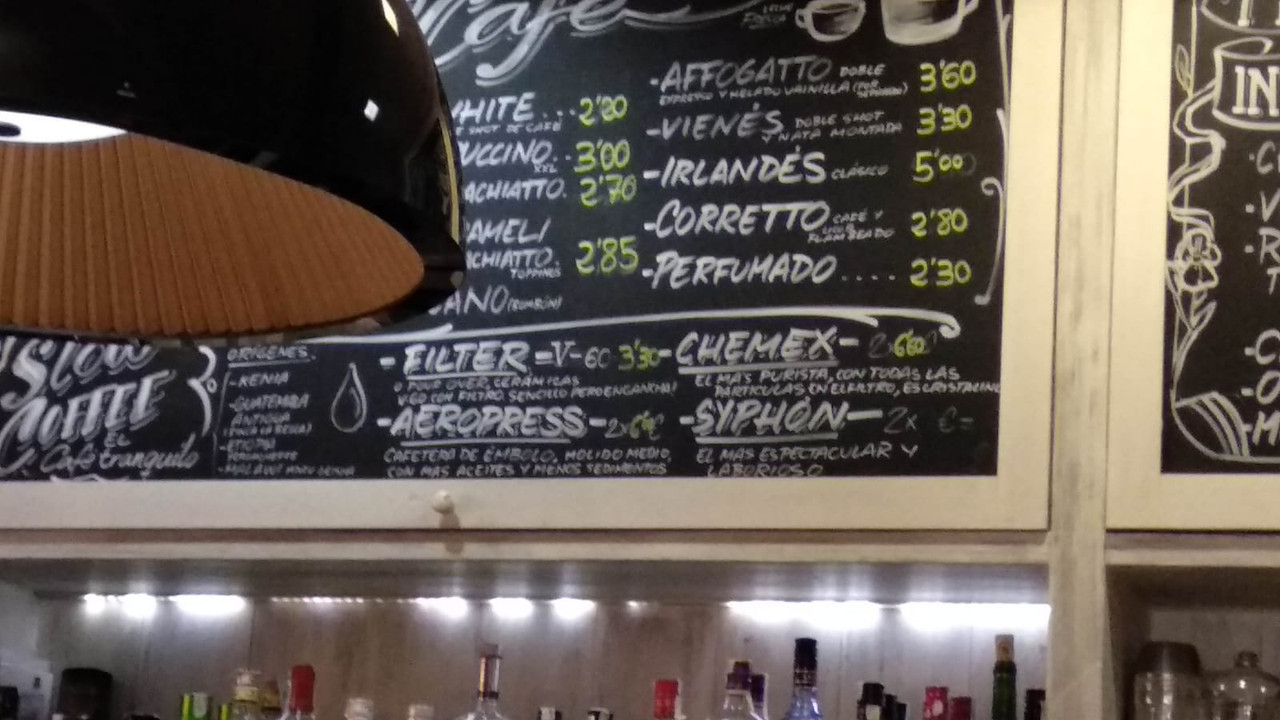 Café
HITE... 2'80
SHOT DE CAFÉ
UCCINO.. 3'00
XXL
ACHIATTO. 2'70
AMELI
CHIATTO. 2'85
TOPPINGS
ANO (BOMBÓN)
-AFFOGATTO DOBLE 3'60
EXPRESO Y HELADO VAINILLA (POR SEPARADO)
-VIENÉS DOBLE SHOT 3'30
Y NATA MONTADA
-IRLANDÉS CLÁSICO 5'00
-CORRETTO CAFÉ Y 2'80
LICOR FLAMBEADO
-PERFUMADO.... 2'30
Slow
COFFEE
EL
Café tranquilo
ORÍGENES.
-KENIA
-GUATEMALA
ANTIGUA
-ETIOPIA
-MALAWI
-FILTER=V-60 3'30
O POUR OVER, CERÁMICAS
V-60 CON FILTRO SENCILLO PERO ENGANCHA!
-AEROPRESS-2x
CAFETERA DE ÉMBOLO, MOLIDO MEDIO,
CON MAS ACEITES Y MENOS SEDIMENTOS
-CHEMEX-
EL MÁS PURISTA, CON TODAS LAS
PARTICULAS EN EL FILTRO, ES CRISTALINO
-SYPHÓN- 2x €=
EL MAS ESPECTACULAR Y
LABORIOSO
IN